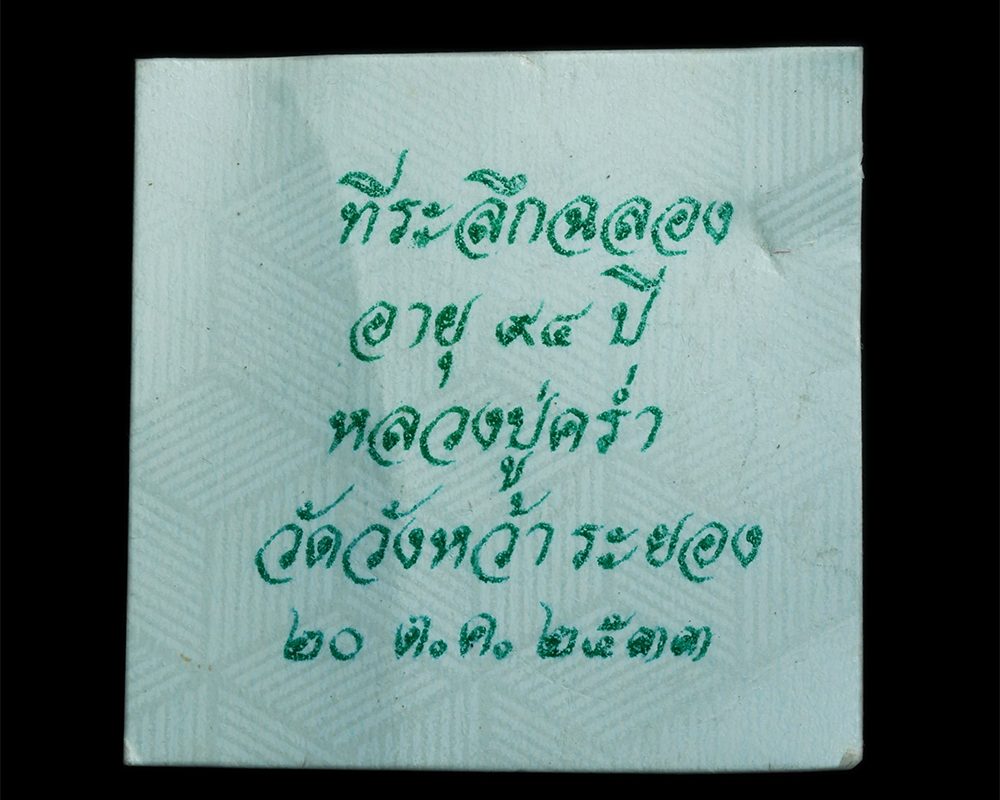 ที่ระลึกฉลอง
อายุ ๙๔ ปี
หลวงปู่คร่ำ
วัดวังหว้า ระยอง
๒๐ ต.ค. ๒๕๓๓